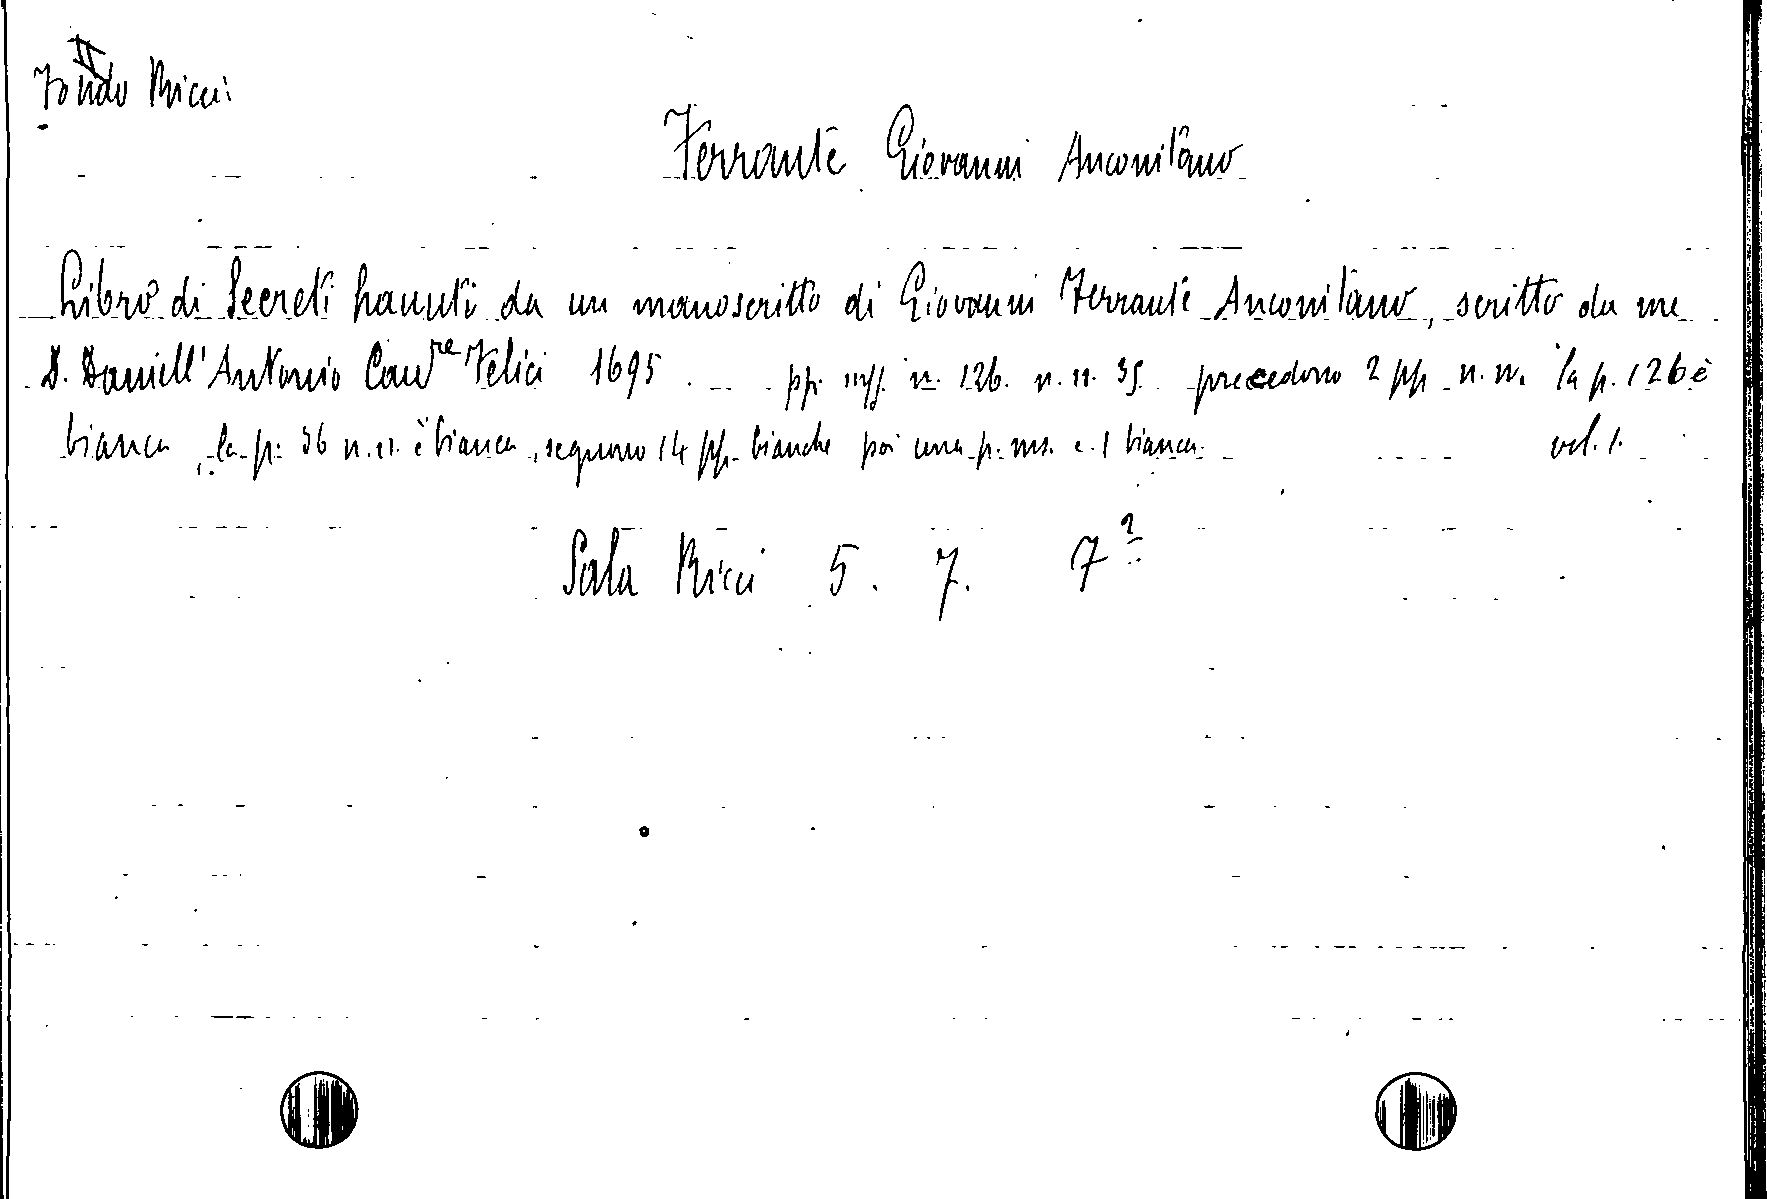 II
Fondo Ricci
Ferrante Giovanni Anconitano
Libro di Secreti hauuti da un manoscritto di Giovanni Ferrante Anconitano, scritto da me
D. Daniell'Antonio Cau^re Felici 1695 pp. mss. n. 126. n. n. 35 precedono 2 pp. n. n. la p. 126 è
bianca, la p. 36 n. n. è bianca, seguono 14 pp. bianche poi una p. ms. e 1 bianca. vol. 1.
Sala Ricci 5. 7. 7^2